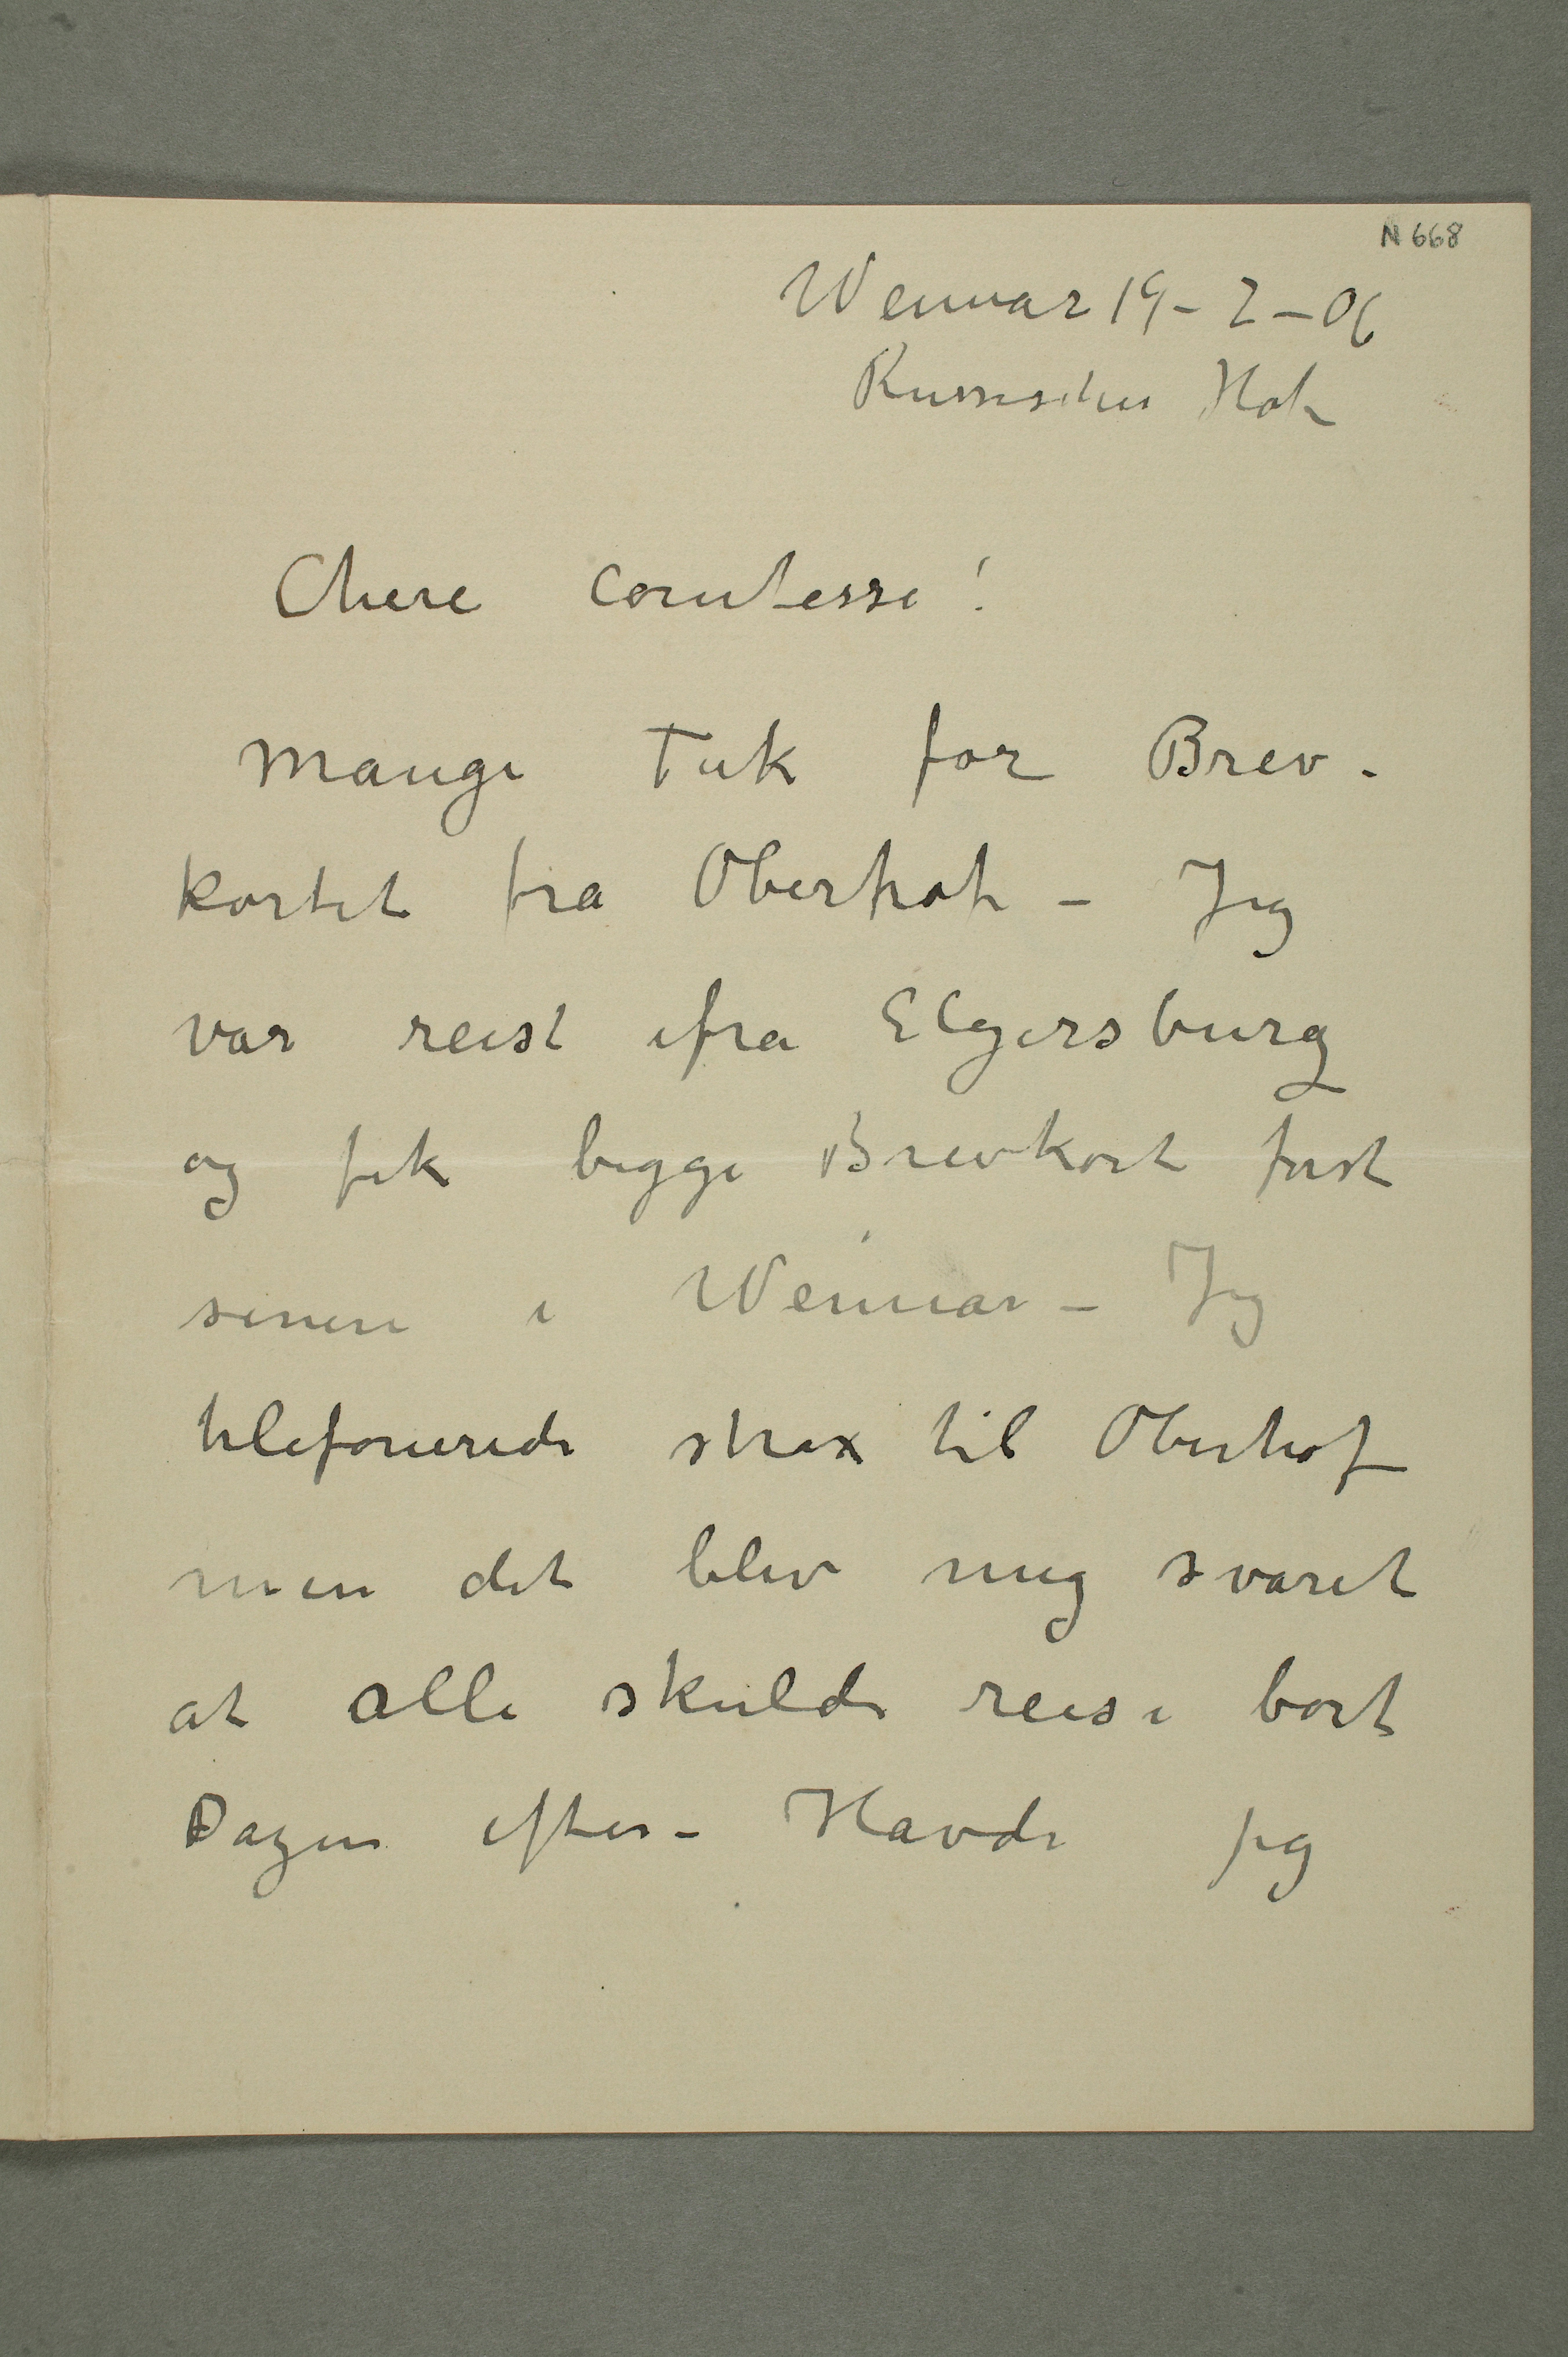 N 668
Weimar 19-2-06
Russischer Hof
Chere comtesse!
Mange Tak for Brev-
kortet fra Oberhof – Jeg
var reist ifra Elgersburg
og fik begge Brevkort først
senere i Weimar – Jeg
telefonerede strax til Oberhof
men det blev mig svaret
at alle skulde reise bort
Dagen efter – Havde jeg